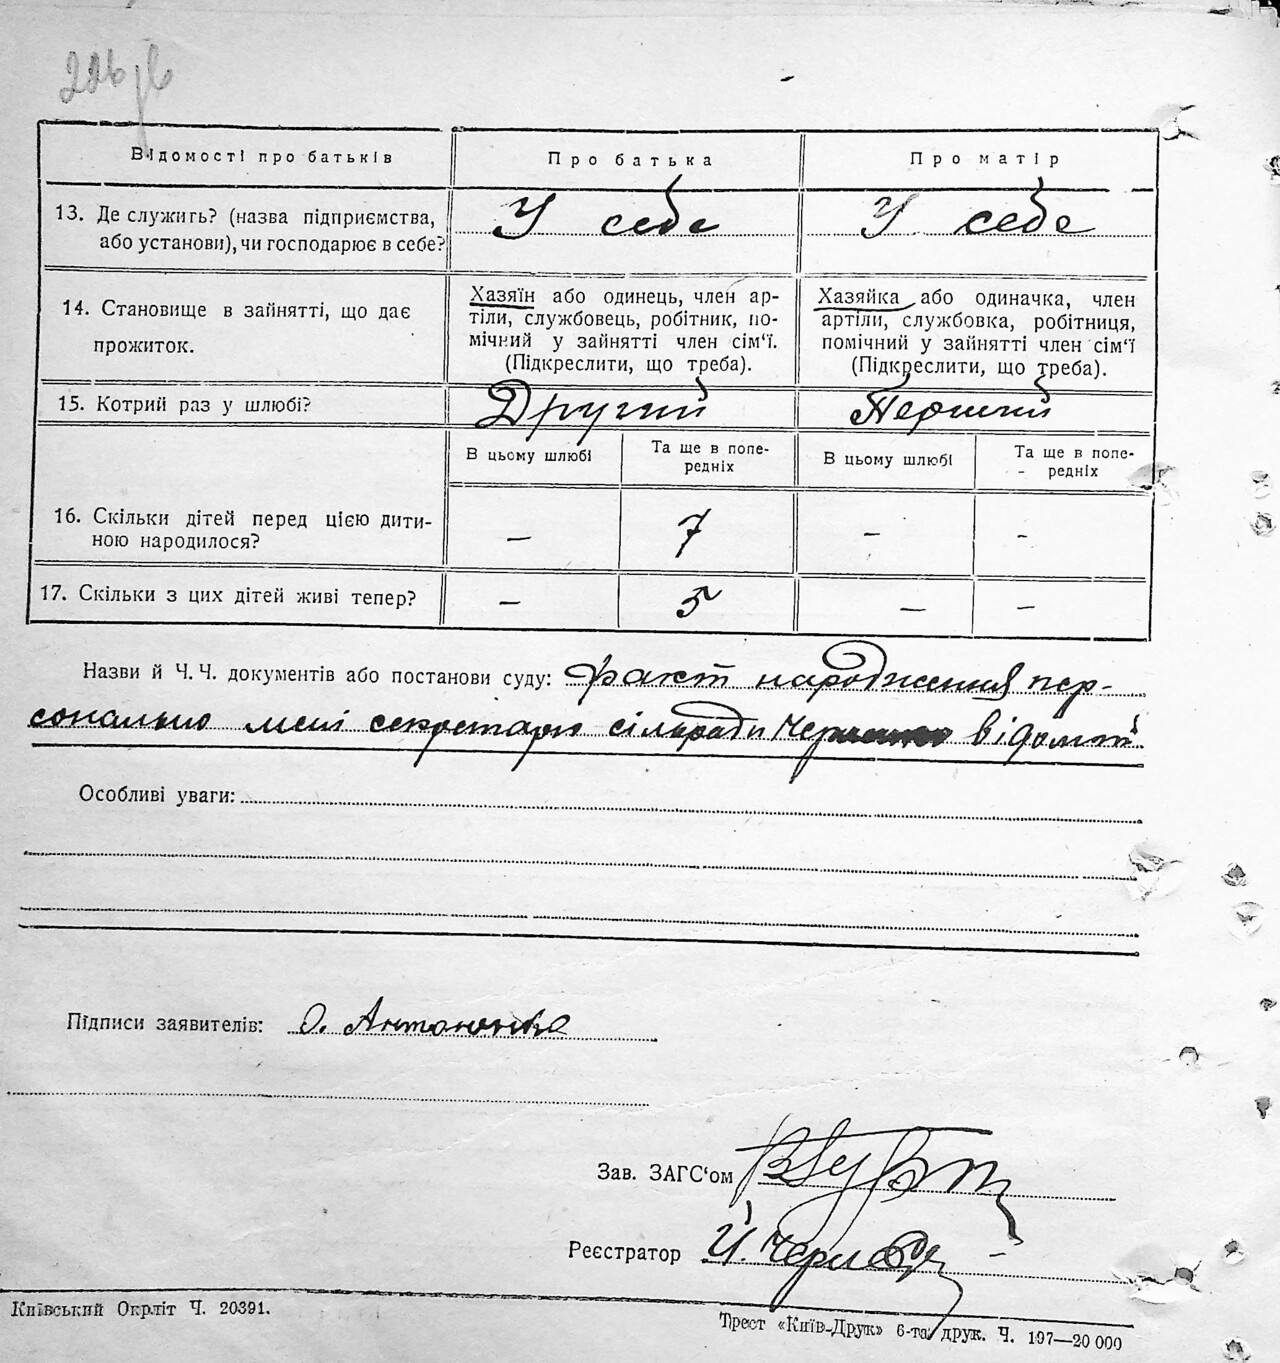 226 зв
Відомості про батьків
Про батька
Про матір
13. Де служить? (назва підприємства, або установи), чи господарює в себе?
У себе
У себе
14. Становище в зайнятті, що дає прожиток.
Хазяїн або одинець, член ар-
тіли, службовець, робітник, по-
мічний у зайнятті член сім‘ї.
(Підкреслити, що треба).
Хазяйка або одиначка, член
артіли, службовка, робітниця,
помічний у зайнятті член сім‘ї
(Підкреслити, що треба).
15. Котрий раз у шлюбі?
Другий
Перший
В цьому шлюбі
Та ще в попе-
редніх
В цьому шлюбі
Та ще в попе-
редніх
16. Скільки дітей перед цією дити-
ною народилося?
–
7
–
–
17. Скільки з цих дітей живі тепер?
–
5
–
–
Назви й Ч. Ч. документів або постанови суду: факт народження пер-
сонально мені секретарю сільради відомий
Особливі уваги:
Підписи заявителів: О. Антоненко
Зав. ЗАГС‘ом
Реєстратор Й.
Київський Окрліт Ч. 20391.
Трест «Київ-Друк» 6-та друк. Ч. 197—20 000